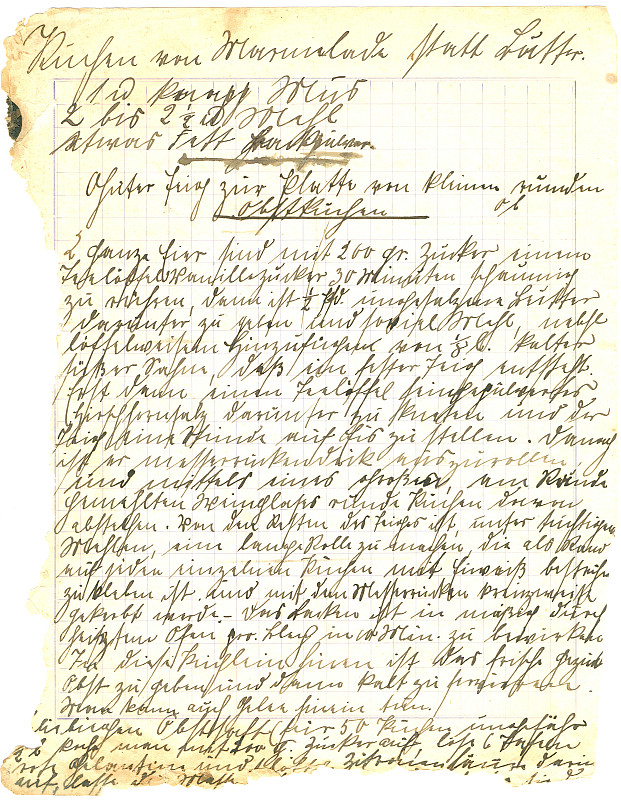 Kuchen von Marmelade statt Butter.
1 ℔ knapp Mus
2 bis 2½ ℔ Mehl
etwas Fett Backpulver.
Teig zur Platte von kleinen runden
Obstkuchen
2 ganze Eier sind mit 200 gr. Zucker einem
Teelöffel Vanillezucker 30 Minuten schaumig
zu rühren, dann ist ½ Pfd. ungesalzene Butter
darunter zu geben und soviel Mehl, nebst
löffelweisem Hinzufügen von ⅛ l. kalter
süßer Sahne, daß ein fester Teig entsteht.
Erst dann einen Teelöffel feingepulvertes
Hirschhornsalz darunter zu kneten und der
Teig eine Stunde auf Eis zu stellen. Danach
ist er messerrückendick auszurollen
und mittels eines großen, am Rande
gemehlten Weinglases runde Kuchen davon
abstechen. Von den Resten des Teiges ist, unter tüchtigem
Mehlen, eine lange Rolle zu machen, die als Rand
auf jeden einzelnen Kuchen mit Eiweiß bestrichen
zu kleben ist und mit dem Messerrücken kreuzweise
gekerbt werde. Das Backen ist in mäßig durch
heiztem Ofen pro Blech in 10 Min. zu bewirken
In diese Küchlein hinein ist das frische
Obst zu geben und dann kalt zu servieren.
Man kann auch Gelee hinein tun.
Obstsaft (für 50 Kuchen ungefähr
kocht man mit 200 gr. Zucker auf, löse 6 Tafeln
rote Gelantine und Zitronensäure darin
auf, lasse die Masse